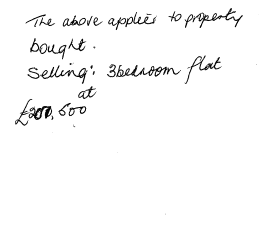 The above applies to property
bought.
Selling: 3bedroom flat
at
£200,500